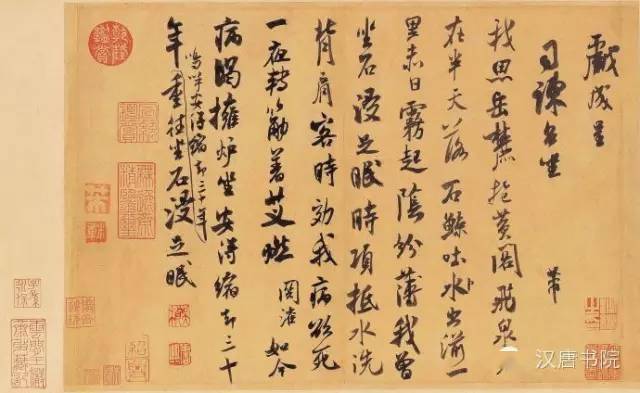 戲成呈
司諫台坐
芾
我思岳麓抱黄閣飛泉
在半天落石鯨吐水出湔一
里赤日霧起陰紛薄我曾
坐石浸足眠時項抵水洗
背肩客時效我病欲死
一夜轉筋著艾燃關漼如今
病渴擁爐坐安得縮却三十
嗚呼安得縮却三十年
年重往坐石浸足眠
乾隆鑑賞
汉唐书院